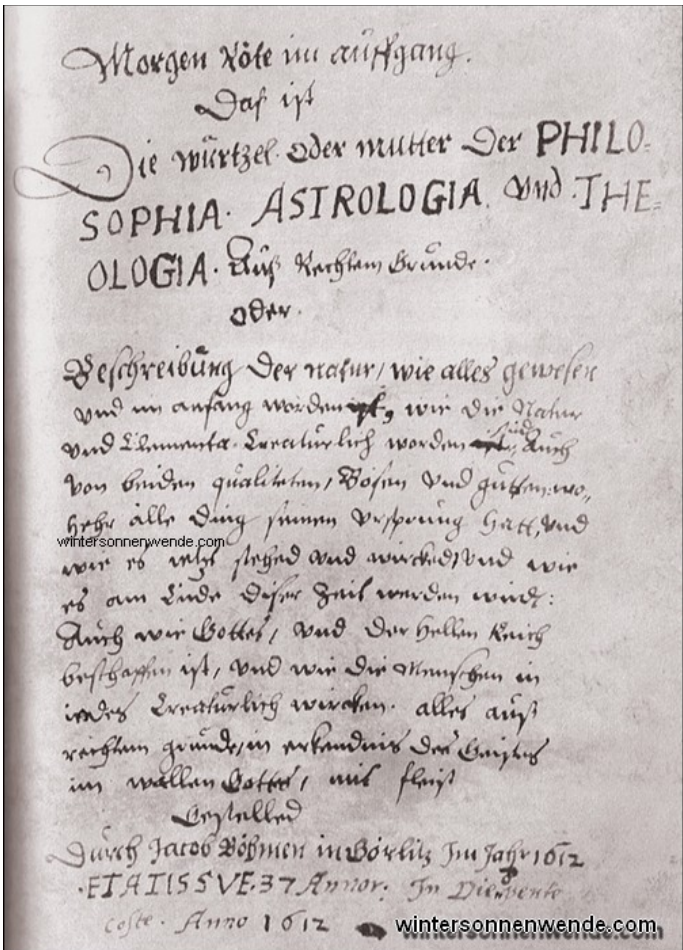 Morgen Röte im auffgang.
Das ist
Die würtzel oder mutter Der PHILO=
SOPHIA. ASTROLOGIA. Vnd THE=
OLOGIA. Auß Rechtem Grunde.
oder.
Beschreibung Der natur, wie alles gewesen
vnd im anfang worden ist, wie die Natur
vnd Elementa Creatürlich worden sind, Auch
von beiden qualiteten, Bösen vnd gutten: wo„
hehr alle ding seinen vrsprung hatt, vnd
wintersonnenwende.com
wie es jetzt stehed vnd wircked, vnd wie
es am Ende diser Zeit werden wird:
Auch wie Gottes, vnd der Hellen Reich
beschaffen ist, vnd wie die Menschen in
iedes Creatürlich wircken. alles auß
rechtem grunde, in erkendnis des Geistes
im wallen Gottes, mit fleiß
Gestelled
Durch Jacob Böhmen in Görlitz Im Jahr 1612
ETATIS SVE. 37 Annor. In Die
coste. Anno 1612
wintersonnenwende.com